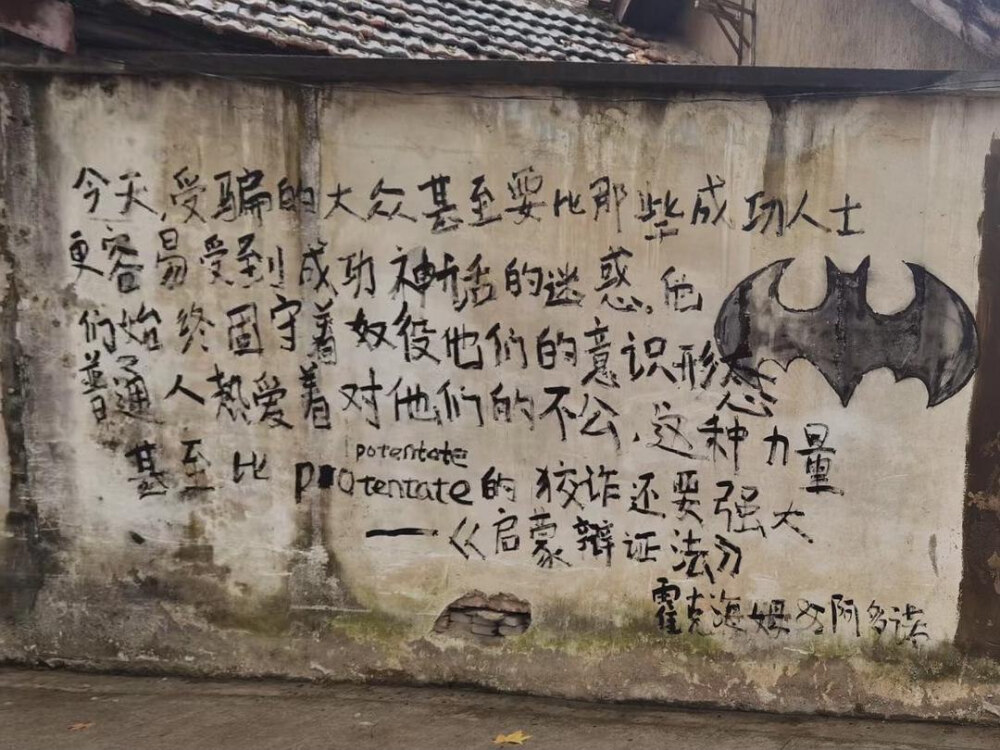 今天,受骗的大众甚至要比那些成功人士
更容易受到成功神话的迷惑。他
们始终固守着奴役他们的意识形态
普通人热爱着对他们的不公,这种力量
potentate
甚至比 protentate 的狡诈还要强大
——《启蒙辩证法》
霍克海姆 阿多诺